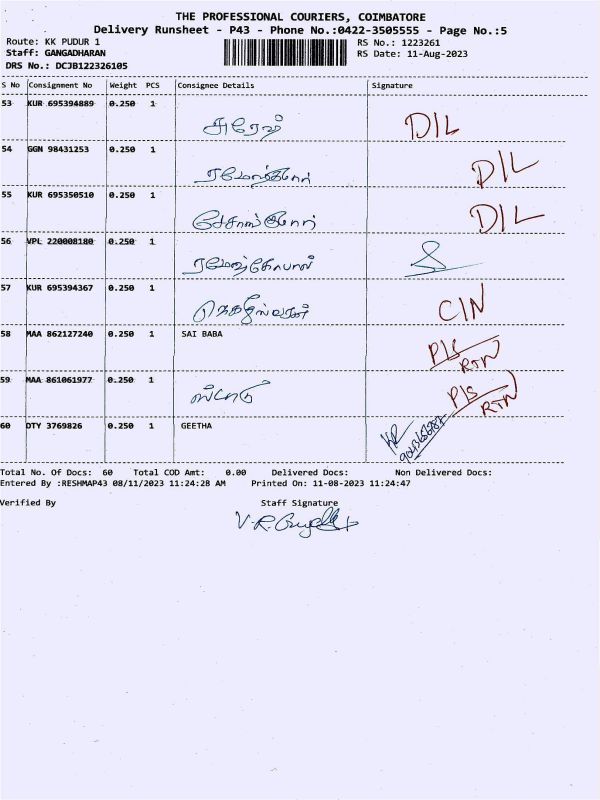 THE PROFESSIONAL COURIERS, COIMBATORE
Delivery Runsheet - P43 - Phone No.:0422-3505555 - Page No.:5
Route: KK PUDUR 1 RS No.: 1223261
Staff: GANGADHARAN RS Date: 11-Aug-2023
DRS No.: DCJB122326105
S No Consignment No Weight PCS Consignee Details Signature
53 KUR 695394889 0.250 1
சுரேஷ் D/L
54 GGN 98431253 0.250 1
D/L
55 KUR 695350510 0.250 1
D/L
56 VPL 220008180 0.250 1
ரமேஷ்கோபால்
57 KUR 695394367 0.250 1
C/N
58 MAA 862127240 0.250 1 SAI BABA
P/S
RTN
59 MAA 861061977 0.250 1
P/S
RTN
60 DTY 3769826 0.250 1 GEETHA
Total No. Of Docs: 60 Total COD Amt: 0.00 Delivered Docs: Non Delivered Docs:
Entered By :RESHMAP43 08/11/2023 11:24:28 AM Printed On: 11-08-2023 11:24:47
Verified By Staff Signature